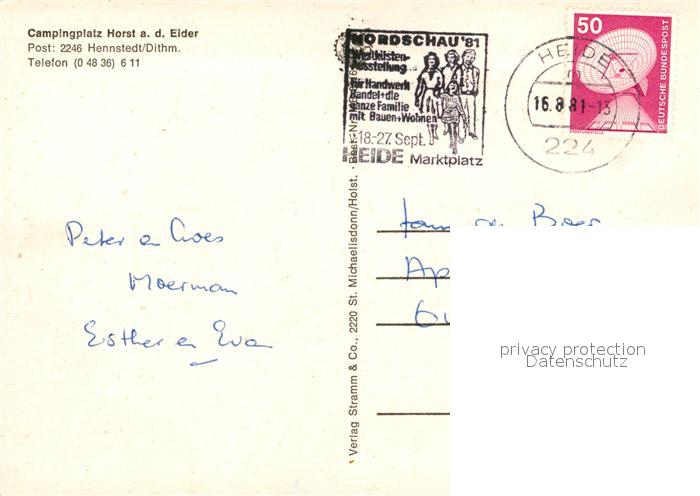 Campingplatz Horst a. d. Eider
Post: 2246 Hennstedt/Dithm.
Telefon (0 48 36) 6 11
NORDSCHAU '81
Westküsten-
Ausstellung
für Handwerk
Handel+die
ganze Familie
mit Bauen+Wohnen
18.-27. Sept.
HEIDE Marktplatz
HEIDE
16.8.81-13
224
50
DEUTSCHE BUNDESPOST
Verlag Stramm & Co., 2220 St. Michaelisdonn/Holst.
Peter en
Moerman
Esther en Eva
Fam. de Boer
Ap
privacy protection
Datenschutz